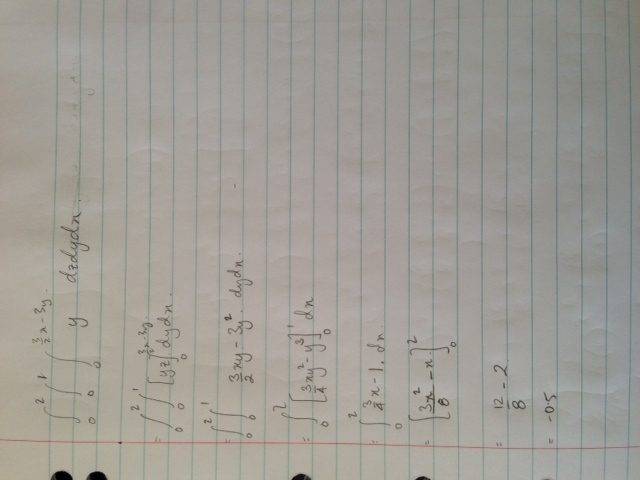 ∫₀² ∫₀¹ ∫₀^(3/2 x - 3y) y dzdydx.
= ∫₀² ∫₀¹ [yz]₀^(3/2 x - 3y) dydx.
= ∫₀² ∫₀¹ 3/2 xy - 3y² dydx.
= ∫₀² [3/4 xy² - y³]₀¹ dx
= ∫₀² 3/4 x - 1. dx
= [3x²/8 - x]₀²
= 12/8 - 2
= -0.5